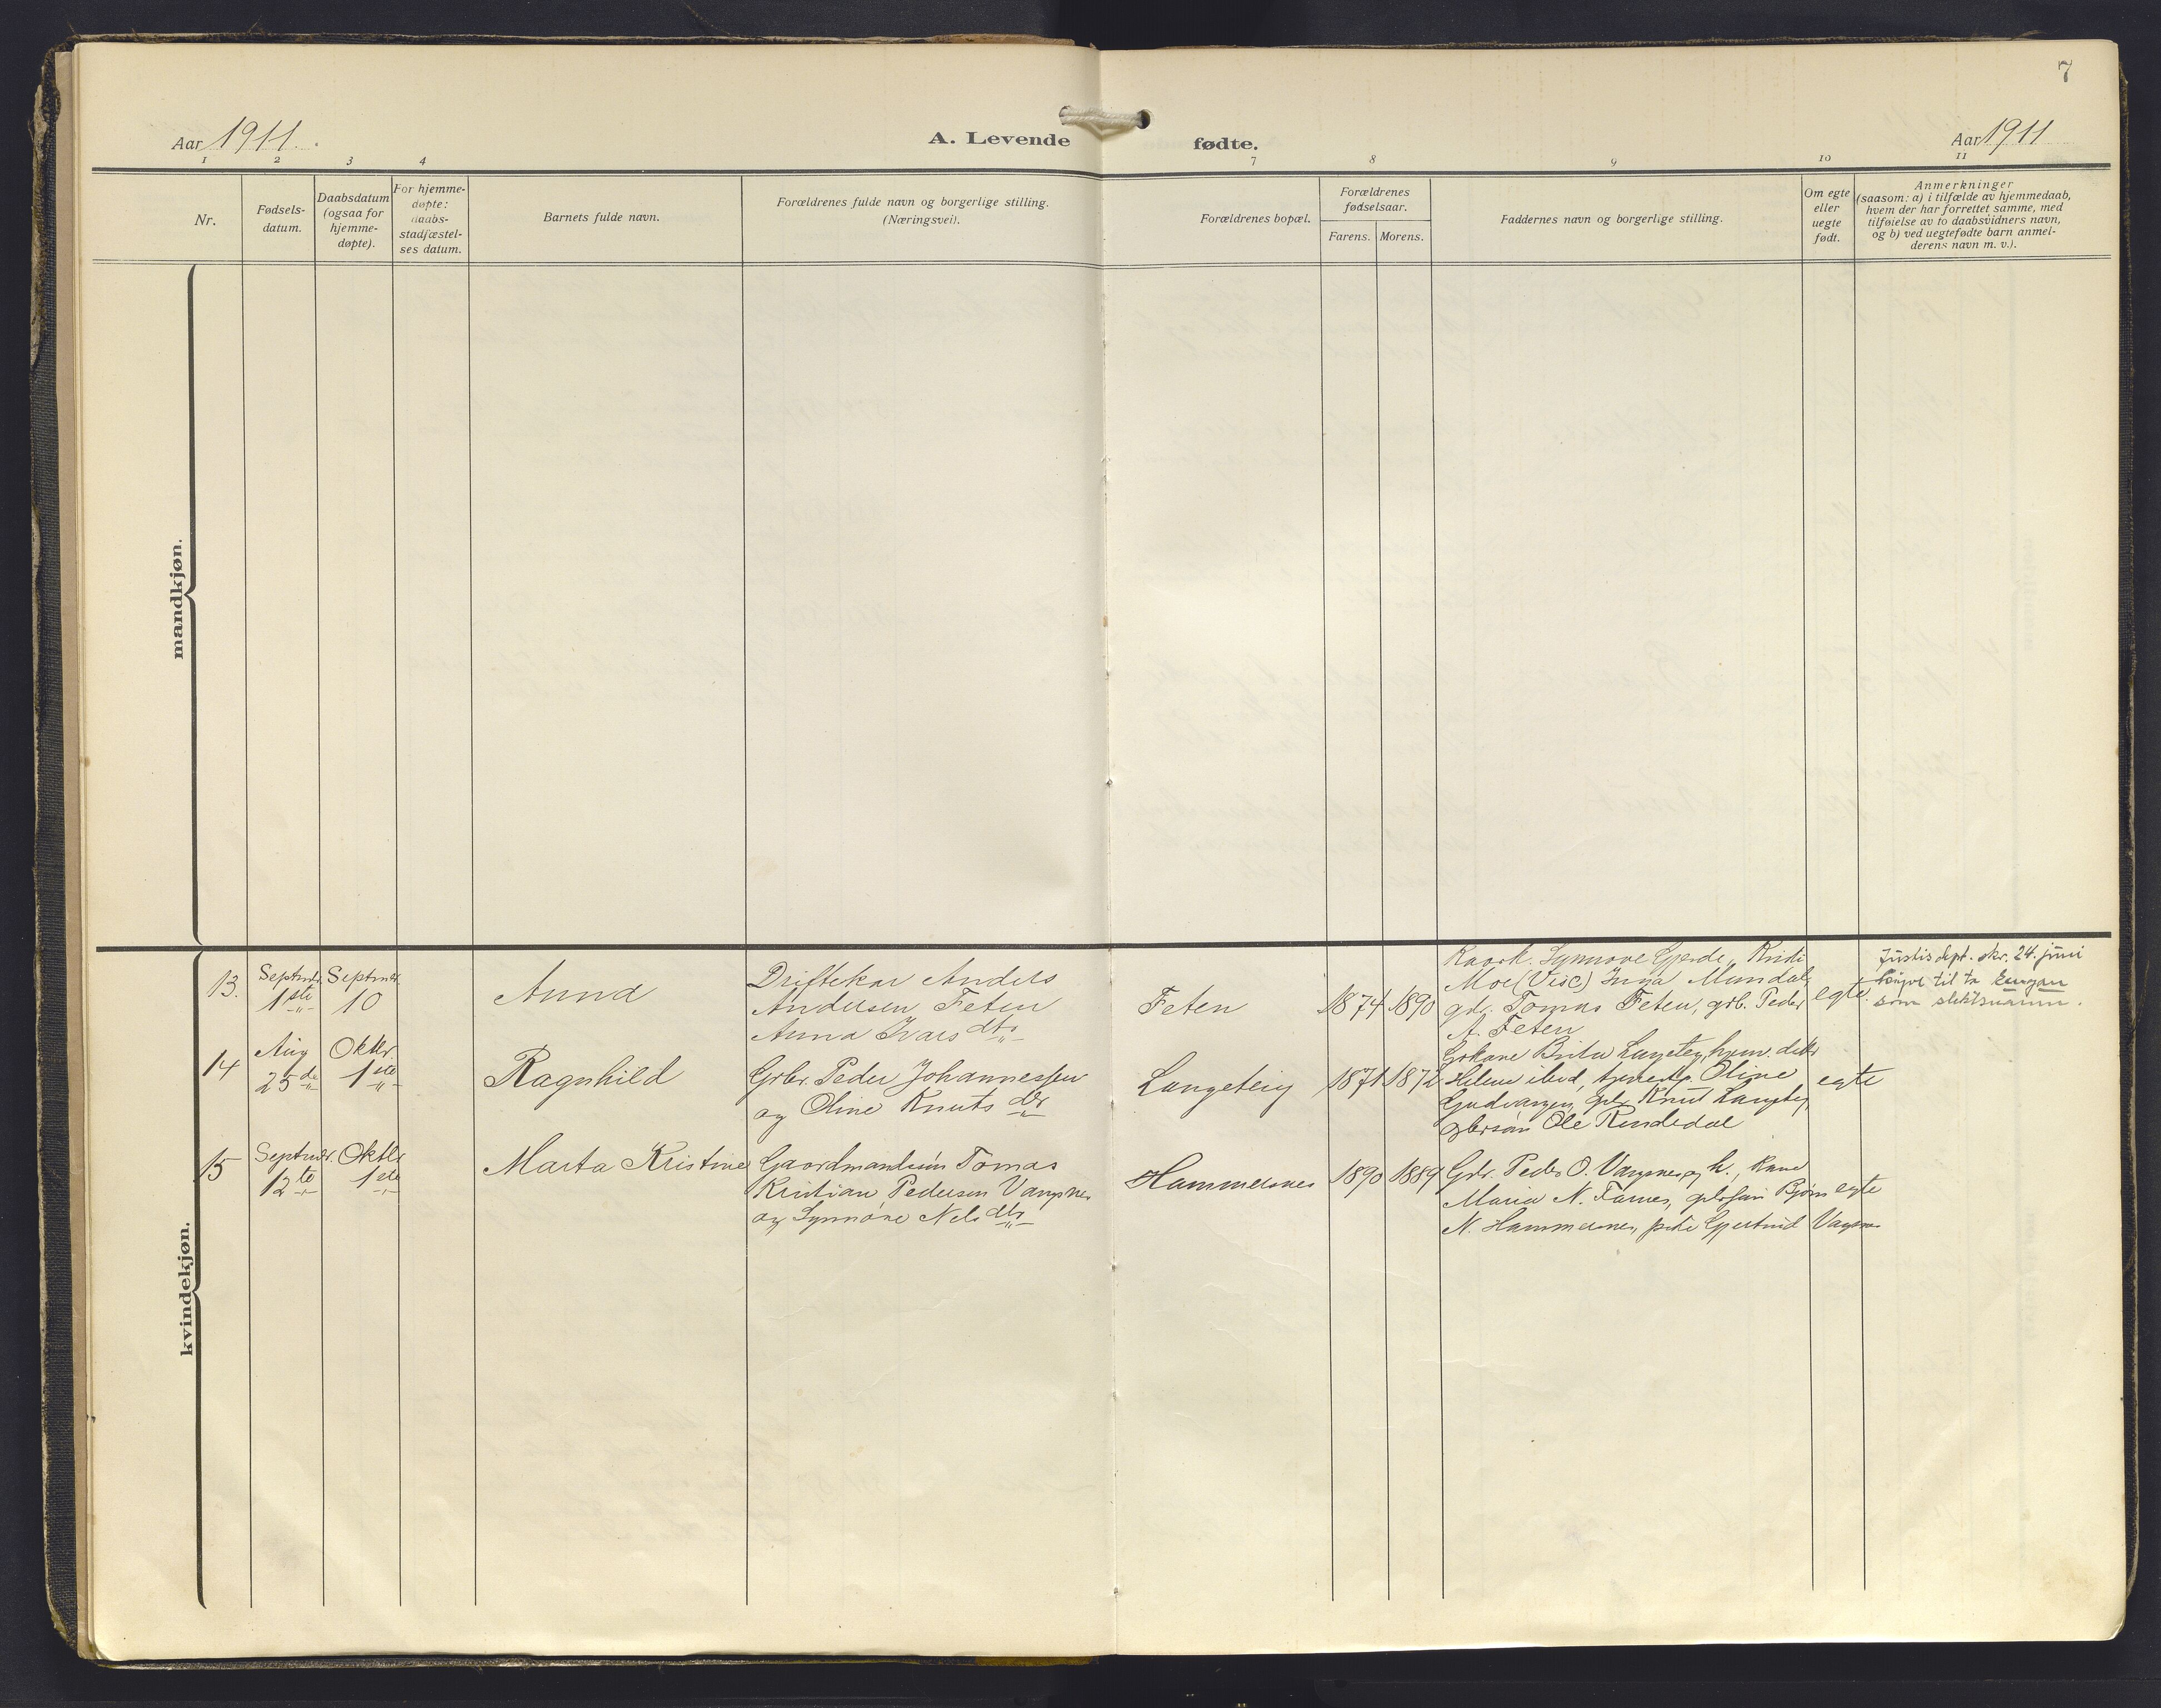 7
Aar 1911.
A. Levende fødte.
Aar 1911
1 2 3 4 7 8 9 10 11
Nr.
Fødsels-
datum.
Daabsdatum
(ogsaa for
hjemme-
døpte).
For hjemme-
døpte:
daabs-
stadfæstel-
ses datum.
Barnets fulde navn.
Forældrenes fulde navn og borgerlige stilling.
(Næringsvei).
Forældrenes bopæl.
Forældrenes
fødselsaar.
Farens. Morens.
Faddernes navn og borgerlige stilling.
Om egte
eller
uegte
født.
Anmerkninger
(saasom: a) i tilfælde av hjemmedaab,
hvem der har forrettet samme, med
tilføielse av to daabsvidners navn,
og b) ved uegtefødte barn anmel-
derens navn m. v.).
mandkjøn.
kvindekjøn.
13.
Septmbr.
1ste
Septmbr.
10
Anna
Driftekar Anders
Andersen Feten
Anna Ivarsdtr
Feten
1874
1890
Synnove Gjerde, Kristi
Moe (Visc) Inga Mundal,
gdr. Tomas Feten, grb. Peder
A. Feten
egte
Justisdept. skr. 24. juni
løyve til ta
som slektsnamn.
14
Aug
25de
Oktbr.
1ste
Ragnhild
Grbr. Peder Johannessen
og Oline Knutsdtr
Langeteig
1871
1872
Grkone Brita Langeteig,
Helene ibid, Oline
Gudvangen, Knut Langeteig,
Ole Rendedal
egte
15
Septmbr.
12te
Oktbr
1ste
Marta Kristine
Gaardmandssøn Tomas
Kristian Pedersen Vangsnes
og Synnøve Nelsdtr
Hammersnes
1890
1889
Gdr. Peder O. Vangsnes og k.,
Maria N. Farnes, Bjørn
N. Hammersnes, pike Gjertrud Vangsnes
egte